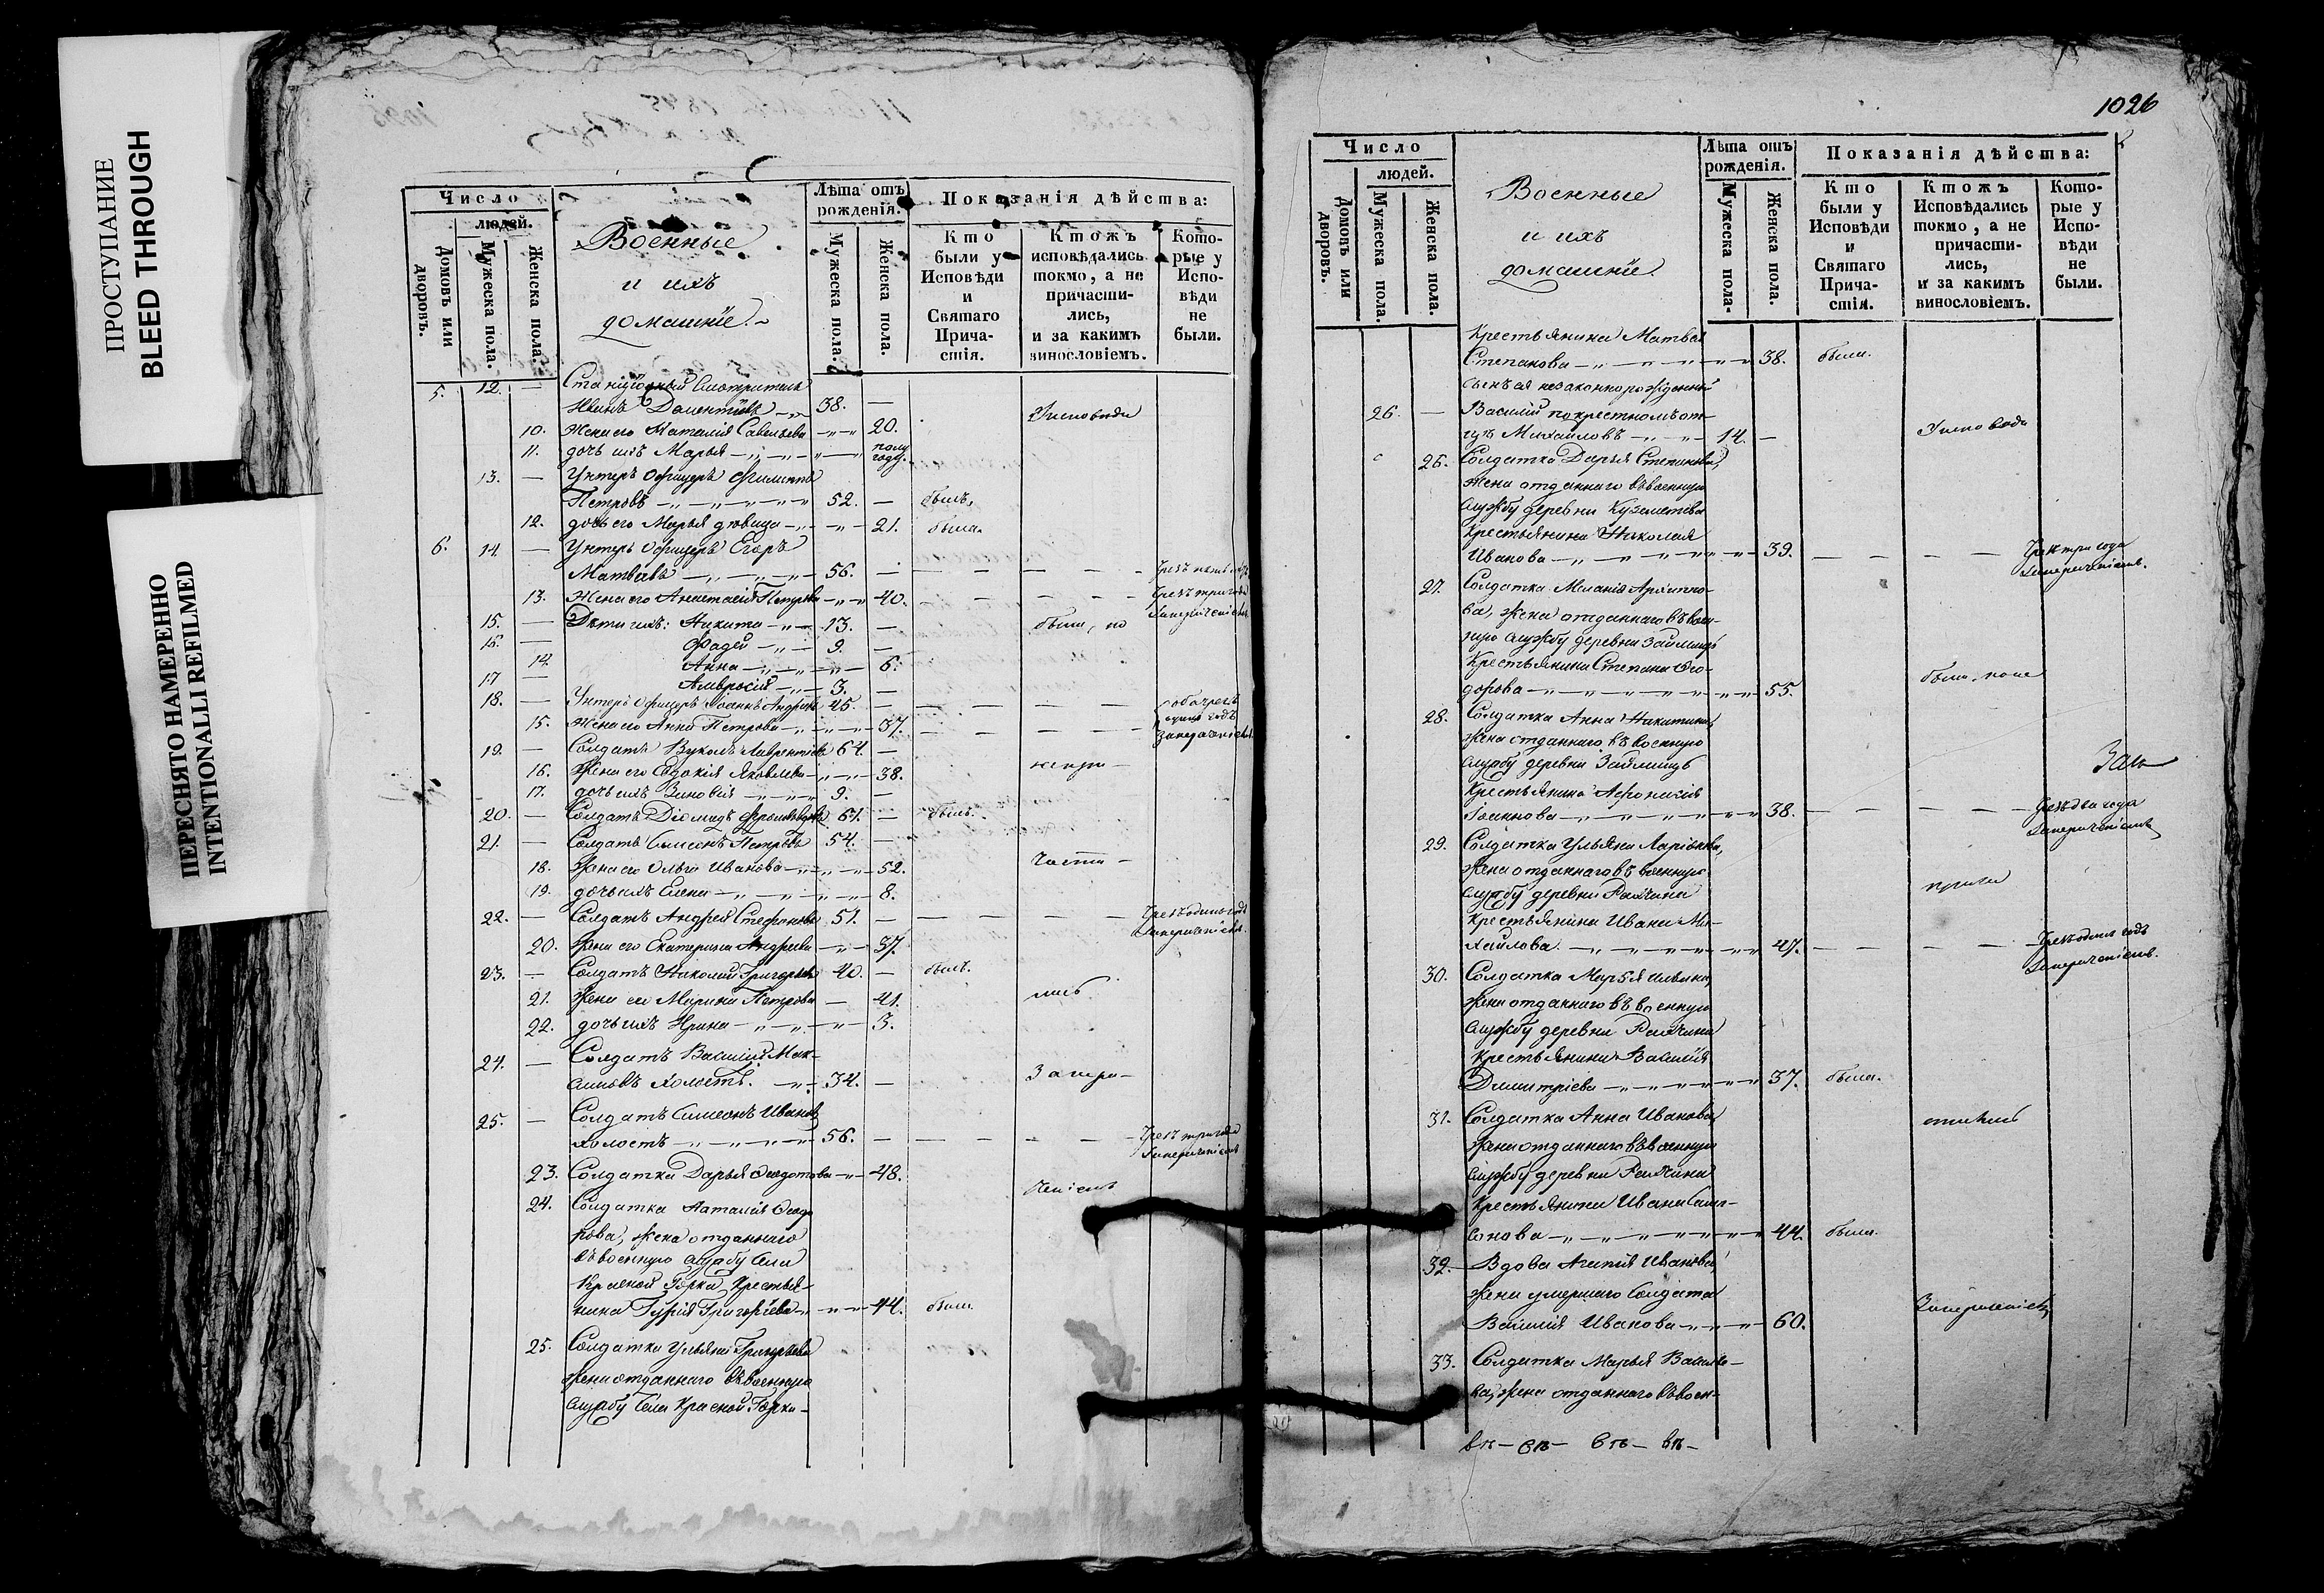 ПРОСТУПАНИЕ
BLEED THROUGH
ПЕРЕСНЯТО НАМЕРЕННО
INTENTIONALLI REFILMED
Число
людей.
Домовъ или дворовъ.
Мужеска пола.
Женска пола.
Военные
и ихъ
домашніе.
Лѣта отъ рожденія.
Мужеска пола.
Женска пола.
Показанія дѣйства:
Кто были у Исповѣди и Святаго Прича-стія.
Ктожъ исповѣдались токмо, а не причасти-лись, и за какимъ винословіемъ.
Кото-рые у Испо-вѣди не были.
5. 12. — Станціонный Смотритель
Иванъ 38. —
10. Жена его Наталія Савельева 20.
11. дочь ихъ Марья полу году.
13. — Унтеръ Офицеръ Филиппъ
Петровъ 52. — былъ.
12. дочь его Марья девица 21. была.
6. 14. — Унтеръ Офицеръ Егоръ
Матвѣевъ 56. —
13. Жена его Анастасія Петрова 40.
15. — Дѣти ихъ: Никита 13. — были, но
16. — Фадей 9. —
14. Анна 6.
17 — Амвросій 3. —
18. — Унтеръ Офицеръ Іоаннъ Андреевъ 45. —
15. Жена его Анна Петрова 37.
19. — Солдатъ Вуколъ Лаврентьевъ 64. —
16. Жена его Евдокія Яковлева 38. непри-
17. дочь ихъ Зиновія 9. —
20. — Солдатъ Діомидъ 67. — былъ.
21. — Солдатъ Симеонъ Петровъ 54. —
18. Жена его Ольга Иванова 52. части-
19. дочь ихъ Елена 8.
22. — Солдатъ Андрей Стефановъ 57. — Чрезъ одинъ годъ
20. Жена его Екатерина Андреева 37.
23. — Солдатъ Николай Григорьевъ 40. — былъ.
21. Жена его Марина Петрова 41. лись
22. дочь ихъ Ирина 3.
24. — Солдатъ Василій Мак-
симовъ холостъ. 34. — Запре-
25. — Солдатъ Симеонъ Ивановъ
холостъ 56. — Чрезъ три года
23. Солдатка Дарья Ѳедотова 48.
24. Солдатка Наталія Ѳедо- ченіемъ
рова, жена отданнаго
въ военную службу Села
Красной Горки Крестья-
нина Гурія Григорьева 44. была.
25. Солдатка Ульяна Григорьева
жена отданнаго въ военную
службу Села Красной Горки
1026
Число
людей.
Домовъ или дворовъ.
Мужеска пола.
Женска пола.
Военные
и ихъ
домашніе.
Лѣта отъ рожденія.
Мужеска пола.
Женска пола.
Показанія дѣйства:
Кто были у Исповѣди и Святаго Прича-стія.
Ктожъ Исповѣдались токмо, а не причасти-лись, и за какимъ винословіемъ.
Кото-рые у Испо-вѣди не были.
Крестьянина Матвея
Степанова 38. была.
сынъ ея незаконнорожденный
26. — Василій по крестному от-
цу Михайловъ 14. —
26. Солдатка Дарья Степанова,
жена отданнаго въ военную
службу деревни
Крестьянина Николая
Иванова 39. — — — Чрезъ три года
27. Солдатка Меланія Архипо-
ва, жена отданнаго въ воен-
ную службу деревни Займищъ
Крестьянина Степана Ѳео-
дорова 55.
28. Солдатка Анна Никитина,
жена отданнаго въ военную
службу деревни Займищъ
Крестьянина Аѳонасія
Іоаннова 38. — — — Чрезъ два года
29. Солдатка Ульяна Ларіонова,
жена отданнаго въ военную
службу деревни
Крестьянина Ивана Ми-
хайлова. 47. — — — Чрезъ одинъ годъ
30. Солдатка Марья Ильина,
жена отданнаго въ военную
службу деревни
Крестьянина Василія
Димитріева 37. была.
31. Солдатка Анна Иванова,
жена отданнаго въ военную
службу деревни
Крестьянина Ивана Сам-
сонова 44. была.
32. Вдова Агапія Иванова,
жена умершаго Солдата
Василія Иванова 60.
33. Солдатка Марья Василье-
ва, жена отданнаго въ воен-